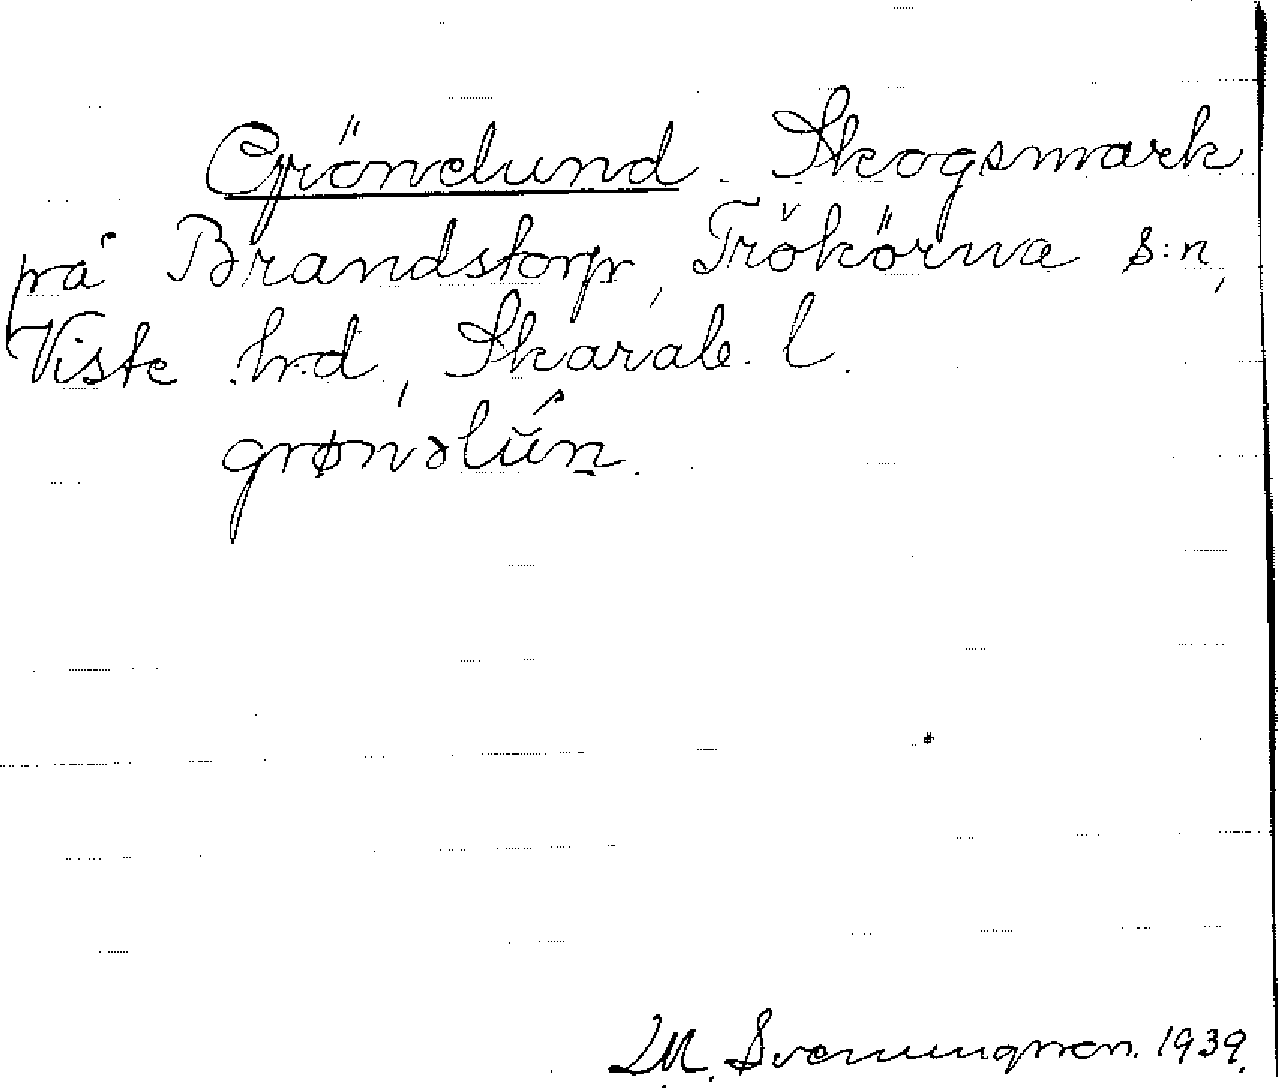 Grönelund. Skogsmark
på Brandstorp, Trökörna s:n,
Viste hd, Skarab. l.
grønəlún.
M. Svenungsson. 1939.